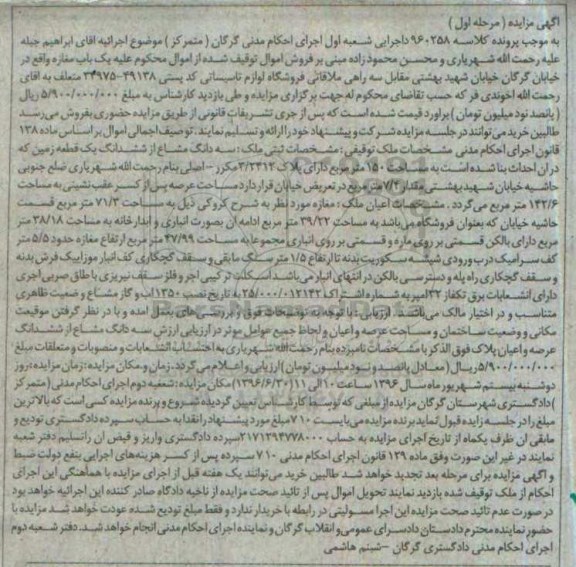 آگهی مزایده ( مرحله اول )
به موجب پرونده کلاسه ۹۶۰۲۵۸ داجرایی شعبه اول اجرای احکام مدنی گرگان ( متمرکز ) موضوع اجرائیه اقای ابراهیم جیله
علیه رحمت الله شهریاری و محسن محمود زاده مبنی بر فروش اموال توقیف شده از اموال محکوم علیه یک باب مغازه واقع در
خیابان گرگان خیابان شهید بهشتی مقابل سه راهی ملاقاتی فروشگاه لوازم تاسیساتی کد پستی ۴۹۱۳۸-۳۴۹۷۵ متعلق به اقای
رحمت الله اخوندی فر که حسب تقاضای محکوم له جهت برگزاری مزایده و طی بازدید کارشناس به مبلغ ۵/۹۰۰/۰۰۰/۰۰۰ ریال
( پانصد نود میلیون تومان ) براورد قیمت شده است که پس از جری تشریفات قانونی از طریق مزایده حضوری بفروش می رسد
طالبین خرید می توانند در جلسه مزایده شرکت و پیشنهاد خود را ارائه و تسلیم نمایند . توصیف اجمالی اموال بر اساس ماده ۱۳۸
قانون اجرای احکام مدنی مشخصات ملک توقیفی : مشخصات ثبتی ملک : سه دانگ مشاع از ششدانگ یک قطعه زمین که
در ان احداث بنا شده است به مساحت ۱۵۰ متر مربع دارای پلاک ۳/۲۳۱۲ مکرر - اصلی بنام رحمت الله شهریاری ضلع جنوبی
حاشیه خیابان شهید بهشتی مقدار ۷/۴ متر مربع در تعریض خیابان قرار دارد مساحت عرصه پس از کسر عقب نشینی به مساحت
۱۴۲/۶ متر مربع می گردد . مشخصات اعیان ملک : مغازه مورد نظر به شرح کروکی ذیل به مساحت ۷۱/۳ متر مربع قسمت
حاشیه خیابان که بعنوان فروشگاه می باشد به مساحت ۳۹/۲۲ متر مربع ادامه ان بصورت انباری و ابدارخانه به مساحت ۳۸/۱۸ متر
مربع دارای بالکن قسمتی بر روی مازه و قسمتی بر روی انباری مجموعا به مساحت ۴۷/۹۹ متر مربع ارتفاع مغازه حدود ۵/۵ متر
کف سرامیک درب ورودی شیشه سکوریت بدنه تا ارتفاع ۱/۵ متر سنگ مابقی و سقف گچکاری کف انبار موزاییک فرش بدنه
و سقف گچکاری راه پله و دسترسی بالکن در انتهای انبار می باشد اسکلت ترکیبی اجر و فلز سقف تیریزی با طاق ضربی اجری
دارای انشعابات برق تکفاز ۳۲ امپر به شماره اشتراک ۲۵/۰۰۰/۰۱۲۱۴۲ به تاریخ نصب ۱۳۵۰ اب و گاز مشاع و وضعیت ظاهری
متناسب و در اختیار مالک می باشد . ارزیابی : با توجه به توضیحات فوق و بررسی های بعمل امده و با در نظر گرفتن موقیعت
مکانی و وضعیت ساختمان و مساحت عرصه و اعیان و لحاظ جمیع عوامل موثر در ارزیابی ارزش سه دانگ مشاع از ششدانگ
عرصه و اعیان پلاک فوق الذکر با مشخصات نامبرده بنام رحمت الله شهریاری به احتساب انشعابات و منصوبات و متعلقات مبلغ
۵/۹۰۰/۰۰۰/۰۰۰ ریال ( معادل پانصد و نود میلیون تومان ) ارزیابی و اعلام می گردد . زمان و مکان مزایده : زمان مزایده : روز
دوشنبه بیستم شهریور ماه سال ۱۳۹۶ ساعت ۱۰ الی ۱۱ (۱۳۹۶/۶/۳۰) مکان مزایده : شعبه دوم اجرای احکام مدنی (متمرکز
) دادگستری شهرستان گرگان مزایده از مبلغی که توسط کارشناس تعیین گردیده شروع و برنده مزایده کسی است که بالاترین
مبلغ را در جلسه مزایده قبول نماید برنده مزایده می بایست ۷۱۰ مبلغ مورد پیشنهاد را نقدا به حساب سپرده دادگستری تودیع و
مابقی ان ظرف یکماه از تاریخ اجرای مزایده به حساب ۲۱۷۱۲۹۴۷۷۸۰۰۰ سپرده دادگستری واریز و فیض ان را تسلیم دفتر شعبه
نمایند در غیر این صورت وفق ماده ۱۲۹ قانون اجرای احکام مدنی ۷۱۰ سپرده پس از کسر هزینه های اجرایی بنفع دولت ضبط
و اگهی مزایده برای مرحله بعد تجدید خواهد شد طالبین خرید می توانند یک هفته قبل از اجرای مزایده با هماهنگی این اجرای
احکام از ملک توقیف شده بازدید نمایند تحویل اموال پس از تائید صحت مزایده از ناحیه دادگاه صادر کننده این اجرائیه خواهد بود
در صورت عدم تائید صحت مزایده این اجرا مسولیتی در رابطه با خریدار ندارد و فقط مبلغ تودیع شده عودت خواهد شد مزایده با
حضور نماینده محترم دادستان دادسرای عمومی و انقلاب گرگان و نماینده اجرای احکام مدنی انجام خواهد شد. دفتر شعبه دوم
اجرای احکام مدنی دادگستری گرگان - شبنم هاشمی